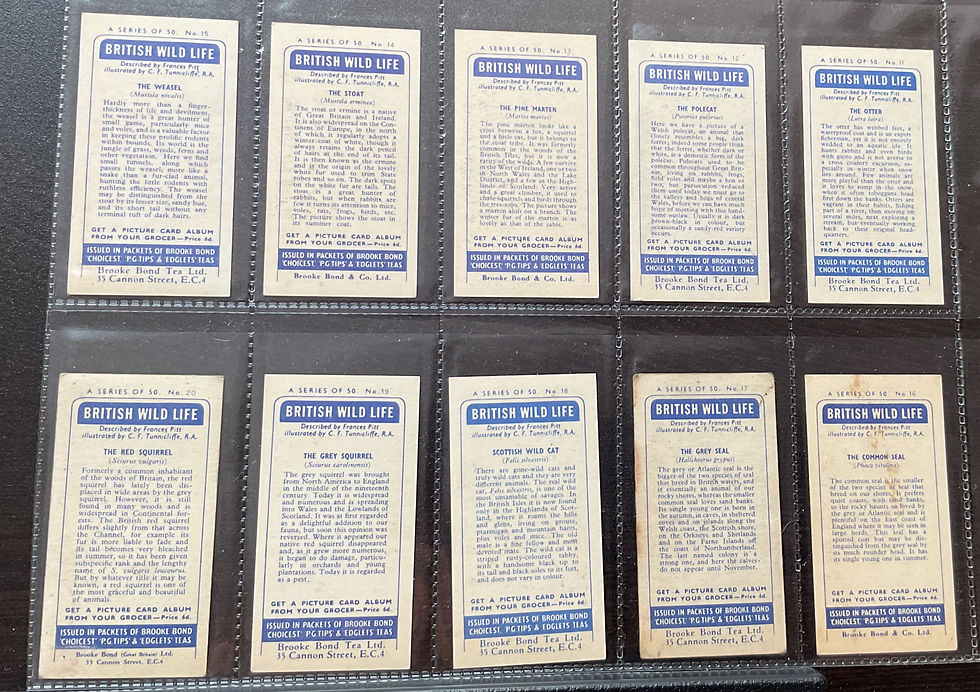 A SERIES OF 50. No. 15
BRITISH WILD LIFE
Described by Frances Pitt
illustrated by C. F. Tunnicliffe, R.A.
THE WEASEL
(Mustela nivalis)
Hardly more than a finger-
thickness of life and devilment,
the weasel is a great hunter of
small game, particularly mice
and voles, and is a valuable factor
in keeping these prolific rodents
within bounds. Its world is the
jungle of grass, weeds, ferns and
other vegetation. Here we find
small tunnels, along which
passes the weasel, more like a
snake than a fur-clad animal,
hunting the little rodents with
ruthless efficiency. The weasel
may be distinguished from the
stoat by its lesser size, sandy hue,
and its short tail without any
terminal tuft of dark hairs.
GET A PICTURE CARD ALBUM
FROM YOUR GROCER—Price 6d.
ISSUED IN PACKETS OF BROOKE BOND
'CHOICEST' 'P.G.TIPS' & 'EDGLETS' TEAS
Brooke Bond Tea Ltd.
35 Cannon Street, E.C.4
A SERIES OF 50. No. 14
BRITISH WILD LIFE
Described by Frances Pitt
illustrated by C. F. Tunnicliffe, R.A.
THE STOAT
(Mustela erminea)
The stoat or ermine is a native
of Great Britain and Ireland.
It is also widespread on the Con-
tinent of Europe, in the north
of which it regularly adopts a
winter-coat of white, though it
always retains the dark pencil
of hairs at the end of its tail.
It is then known as the ermine
and is the origin of the lovely
white fur used to trim State
robes and so on. The dark spots
on the white fur are tails. The
stoat is a great hunter of
rabbits, but when rabbits are
few it turns its attention to mice,
voles, rats, frogs, birds, etc.
The picture shows the stoat in
its summer coat.
GET A PICTURE CARD ALBUM
FROM YOUR GROCER—Price 6d.
ISSUED IN PACKETS OF BROOKE BOND
'CHOICEST' 'P.G.TIPS' & 'EDGLETS' TEAS
Brooke Bond & Co. Ltd.
A SERIES OF 50. No. 13
BRITISH WILD LIFE
Described by Frances Pitt
illustrated by C. F. Tunnicliffe, R.A.
THE PINE MARTEN
(Martes martes)
The pine marten looks like a
cross between a fox, a squirrel
and a little cat, but it belongs to
the stoat tribe. It was formerly
common in the woods of the
British Isles, but it is now a
rarity of the wilds. A few survive
in the West of Ireland, one or two
in North Wales and the Lake
District, and a few in the High-
lands of Scotland. Very active
and a great climber, it used to
chase squirrels and birds through
the tree-tops. The picture shows
a marten aloft on a branch. The
winter fur of the marten is as
lovely as that of the sable.
GET A PICTURE CARD ALBUM
FROM YOUR GROCER—Price 6d.
ISSUED IN PACKETS OF BROOKE BOND
'CHOICEST' 'P.G.TIPS' & 'EDGLETS' TEAS
Brooke Bond & Co. Ltd.
A SERIES OF 50. No. 12
BRITISH WILD LIFE
Described by Frances Pitt
illustrated by C. F. Tunnicliffe, R.A.
THE POLECAT
(Putorius putorius)
Here we have a picture of a
Welsh polecat, an animal that
closely resembles a big, dark
ferret; indeed some people think
that the ferret, whether dark or
white, is a domestic form of the
polecat. Polecats used to be
common throughout Great Brit-
ain, living on rabbits, frogs,
field voles and maybe a hen or
two, but persecution reduced
them until today we must go to
the valleys and bogs of central
Wales, before we can have much
hope of meeting with this hand-
some outlaw. Usually it is dark
brown-black in colour, but
occasionally a sandy-red variety
occurs.
GET A PICTURE CARD ALBUM
FROM YOUR GROCER—Price 6d.
ISSUED IN PACKETS OF BROOKE BOND
'CHOICEST' 'P.G.TIPS' & 'EDGLETS' TEAS
Brooke Bond Tea Ltd.
35 Cannon Street, E.C.4
A SERIES OF 50. No. 11
BRITISH WILD LIFE
Described by Frances Pitt
illustrated by C. F. Tunnicliffe, R.A.
THE OTTER
(Lutra lutra)
The otter has webbed feet, a
waterproof coat and is an expert
fisherman, yet it is not entirely
wedded to an aquatic life. It
hunts rabbits and even birds
with gusto and is not averse to
a cross country excursion, es-
pecially in winter when snow
lies around. Few animals are
more playful than the otter and
it loves to romp in the snow,
when it often toboggans head
first down the banks. Otters are
vagrant in their habits, fishing
part of a river, then moving on
several miles, next exploring a
stream, but eventually working
back to their original head-
quarters.
GET A PICTURE CARD ALBUM
FROM YOUR GROCER—Price 6d.
ISSUED IN PACKETS OF BROOKE BOND
'CHOICEST' 'P.G.TIPS' & 'EDGLETS' TEAS
Brooke Bond Tea Ltd.
35 Cannon Street, E.C.4
A SERIES OF 50. No. 20
BRITISH WILD LIFE
Described by Frances Pitt
illustrated by C. F. Tunnicliffe, R.A.
THE RED SQUIRREL
(Sciurus vulgaris)
Formerly a common inhabitant
of the woods of Britain, the red
squirrel has lately been dis-
placed in wide areas by the grey
squirrel. However, it is still
found in many woods and is
widespread in Continental for-
ests. The British red squirrel
differs slightly from that across
the Channel, for example its
fur is more liable to fade and
its tail becomes very bleached
in summer, so it has been given
subspecific rank and the lengthy
name of S. vulgaris leucourus.
But by whatever title it may be
known, a red squirrel is one of
the most graceful and beautiful
of animals.
GET A PICTURE CARD ALBUM
FROM YOUR GROCER—Price 6d.
ISSUED IN PACKETS OF BROOKE BOND
'CHOICEST' 'P.G.TIPS' & 'EDGLETS' TEAS
Brooke Bond (Great Britain) Ltd.
35 Cannon Street, E.C.4
A SERIES OF 50. No. 19
BRITISH WILD LIFE
Described by Frances Pitt
illustrated by C. F. Tunnicliffe, R.A.
THE GREY SQUIRREL
(Sciurus carolinensis)
The grey squirrel was brought
from North America to England
in the middle of the nineteenth
century. Today it is widespread
and numerous and is spreading
into Wales and the Lowlands of
Scotland. It was at first regarded
as a delightful addition to our
fauna, but soon this opinion was
reversed. Where it appeared our
native red squirrel disappeared
and, as it grew more numerous,
it began to do damage, particu-
larly in orchards and young
plantations. Today it is regarded
as a pest.
GET A PICTURE CARD ALBUM
FROM YOUR GROCER—Price 6d.
ISSUED IN PACKETS OF BROOKE BOND
'CHOICEST' 'P.G.TIPS' & 'EDGLETS' TEAS
Brooke Bond Tea Ltd.
35 Cannon Street, E.C.4
A SERIES OF 50. No. 18
BRITISH WILD LIFE
Described by Frances Pitt
illustrated by C. F. Tunnicliffe, R.A.
SCOTTISH WILD CAT
(Felis silvestris)
There are gone-wild cats and
truly wild cats and they are very
different animals. The real wild
cat, Felis silvestris, is one of the
most untamable of savages. In
the British Isles it is now found
only in the Highlands of Scot-
land, where it roams the hills
and glens, living on grouse,
ptarmigan and mountain hares,
plus voles and mice. The old
male is a fine fellow and most
devoted mate. The wild cat is a
striped rusty-coloured tabby,
with a handsome black tip to
its tail and black soles to its feet,
and does not vary in colour.
GET A PICTURE CARD ALBUM
FROM YOUR GROCER—Price 6d.
ISSUED IN PACKETS OF BROOKE BOND
'CHOICEST' 'P.G.TIPS' & 'EDGLETS' TEAS
Brooke Bond Tea Ltd.
35 Cannon Street, E.C.4
A SERIES OF 50. No. 17
BRITISH WILD LIFE
Described by Frances Pitt
illustrated by C. F. Tunnicliffe, R.A.
THE GREY SEAL
(Halichoerus grypus)
The grey or Atlantic seal is the
bigger of the two species of seal
that breed in British waters, and
it is essentially an animal of our
rocky shores, whereas the smaller
common seal loves sand banks.
Its single young one is born in
the autumn, in caves, in sheltered
coves and on islands along the
Welsh coast, the Scottish shore,
on the Orkneys and Shetlands
and on the Farne Islands off
the coast of Northumberland.
The last named colony is a
strong one, and here the calves
do not appear until November.
GET A PICTURE CARD ALBUM
FROM YOUR GROCER—Price 6d.
ISSUED IN PACKETS OF BROOKE BOND
'CHOICEST' 'P.G.TIPS' & 'EDGLETS' TEAS
Brooke Bond Tea Ltd.
35 Cannon Street, E.C.4
A SERIES OF 50. No. 16
BRITISH WILD LIFE
Described by Frances Pitt
illustrated by C. F. Tunnicliffe, R.A.
THE COMMON SEAL
(Phoca vitulina)
The common seal is the smaller
of the two species of seal that
breed on our shores. It prefers
quiet coasts, with sand banks,
to the rocky haunts so loved by
the grey or Atlantic seal and is
plentiful on the East coast of
England where it may be seen in
large herds. This seal has a
spotted coat but may be dis-
tinguished from the grey seal by
its much rounder head. It has
its single young one in summer.
GET A PICTURE CARD ALBUM
FROM YOUR GROCER—Price 6d.
ISSUED IN PACKETS OF BROOKE BOND
'CHOICEST' 'P.G.TIPS' & 'EDGLETS' TEAS
Brooke Bond & Co. Ltd.